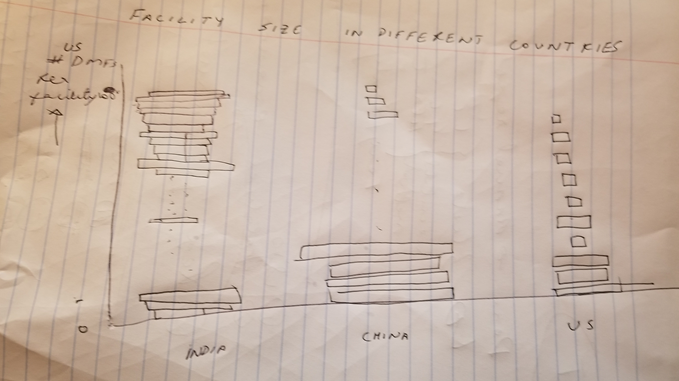 FACILITY SIZE IN DIFFERENT COUNTRIES
US
# DMFs
Per
facility
1
0
INDIA
CHINA
US